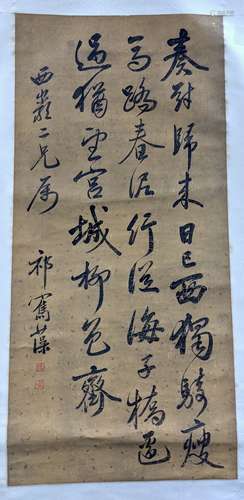 奏對歸来日已西獨騎瘦
馬踏春泥行從海子橋邊
過猶望宮城柳色齊
西巖二兄属
祁寯藻